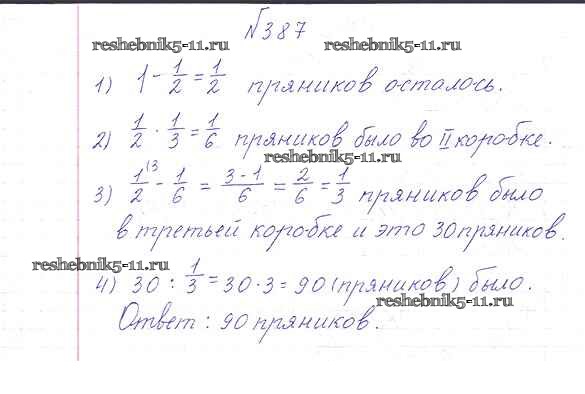 №387
reshebnik5-11.ru reshebnik5-11.ru
1) 1 - 1/2 = 1/2 пряников осталось.
2) 1/2 · 1/3 = 1/6 пряников было во II коробке.
reshebnik5-11.ru
3) 1/2 (3 - 1/6 = (3-1)/6 = 2/6 = 1/3 пряников было
в третьей коробке и это 30 пряников.
reshebnik5-11.ru
4) 30 : 1/3 = 30 · 3 = 90 (пряников) было.
reshebnik5-11.ru
Ответ: 90 пряников.